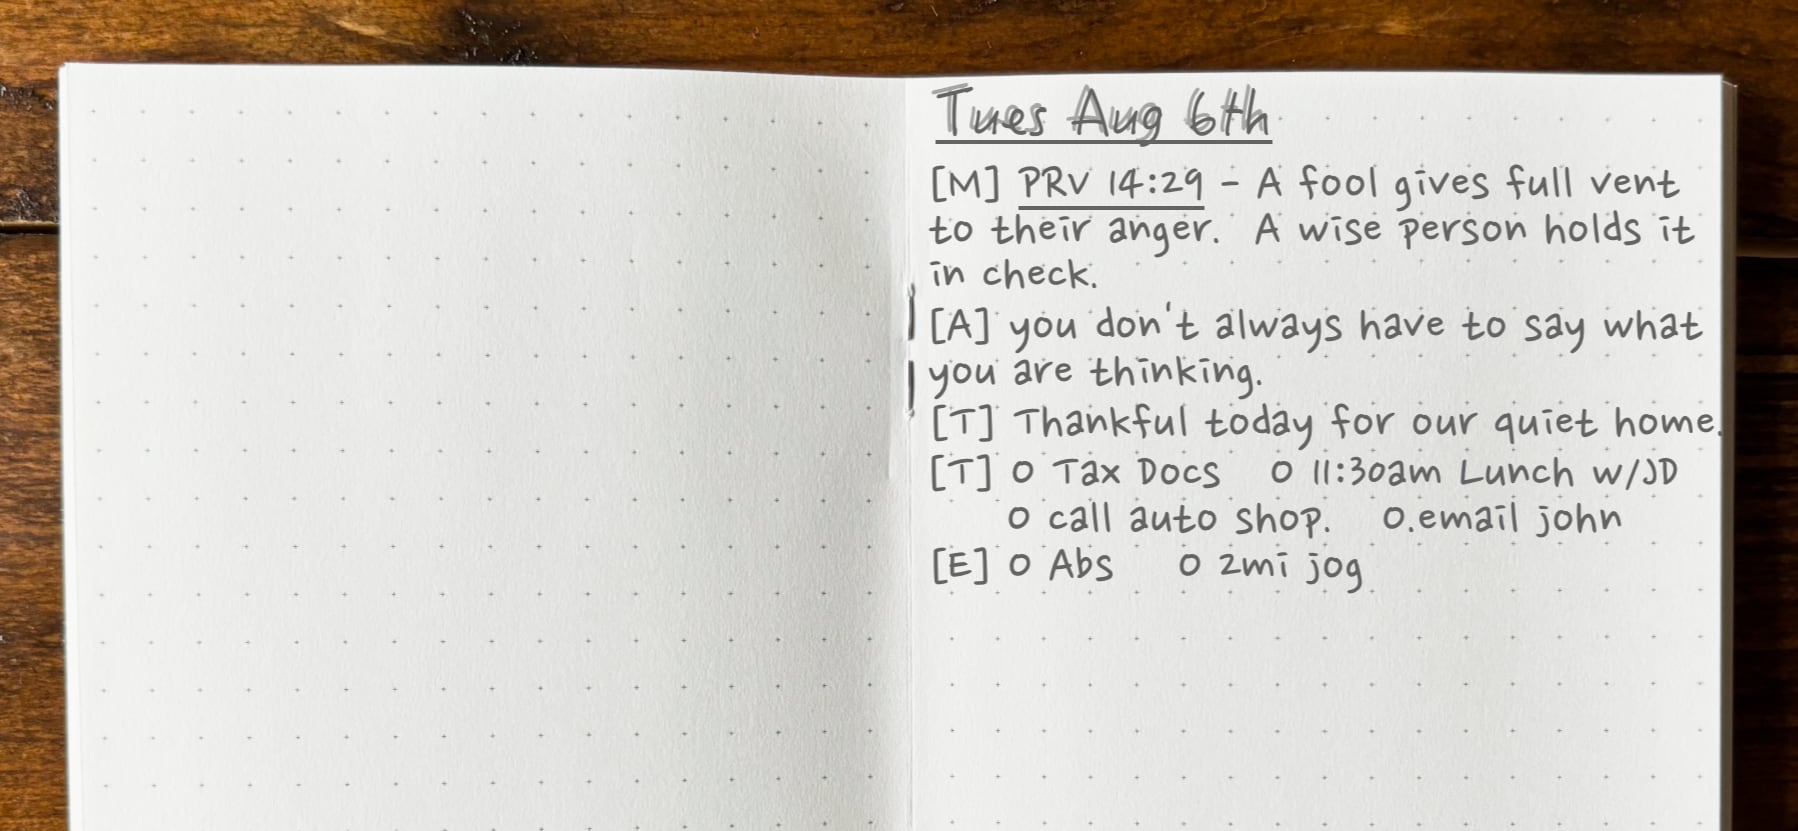 Tues Aug 6th
[M] PRV 14:29 - A fool gives full vent
to their anger. A wise person holds it
in check.
[A] you don't always have to say what
you are thinking.
[T] Thankful today for our quiet home.
[T] O Tax Docs O 11:30am Lunch w/JD
O call auto shop. O.email john
[E] O Abs O 2mi jog